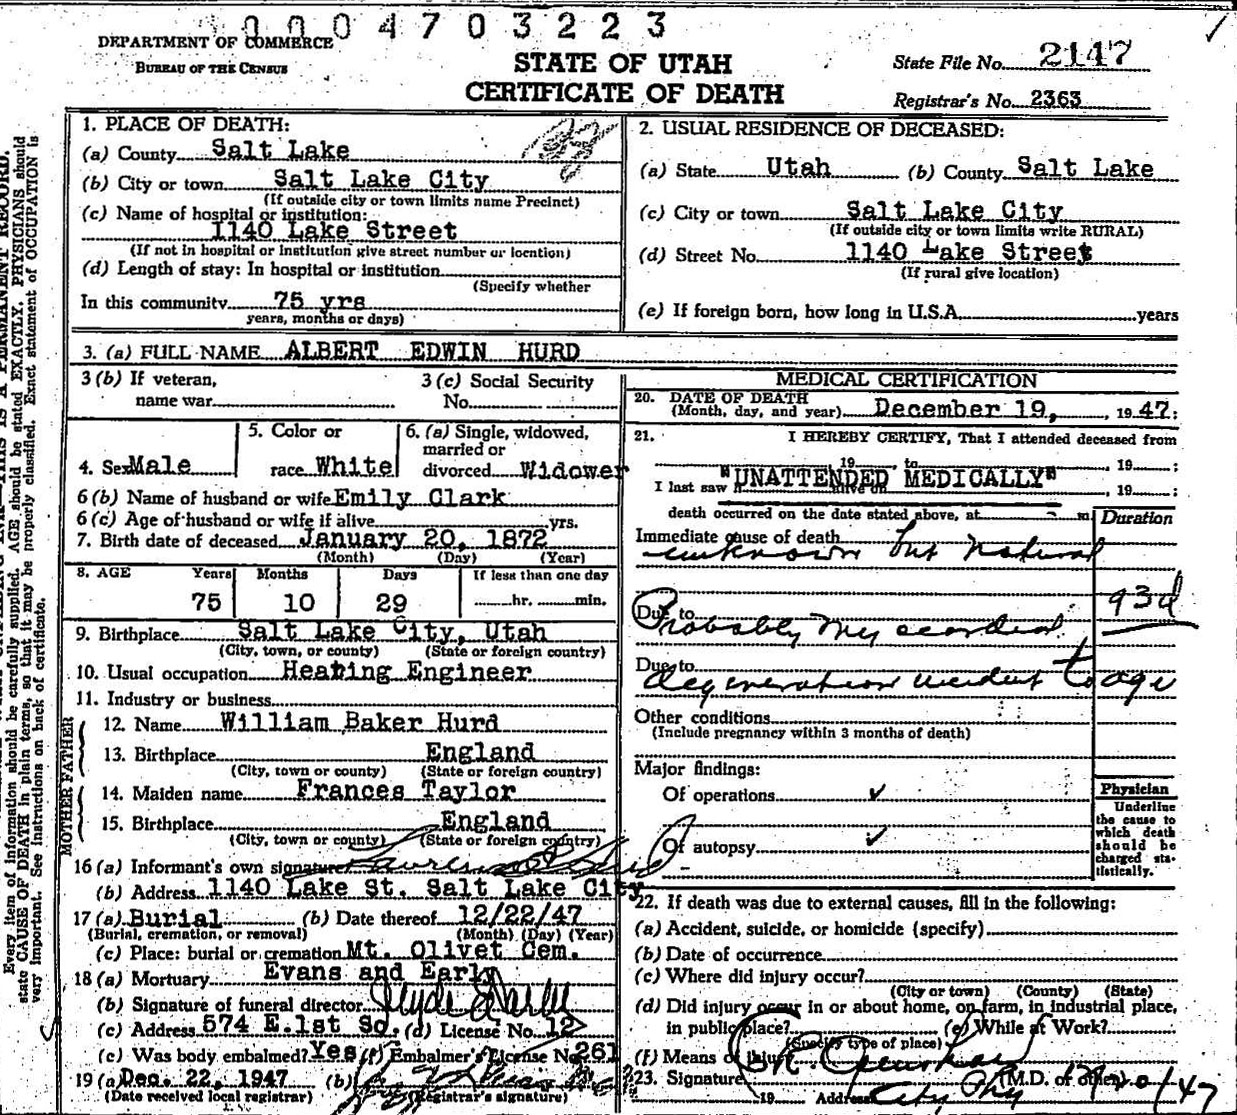 0004703223
DEPARTMENT OF COMMERCE
BUREAU OF THE CENSUS
STATE OF UTAH
CERTIFICATE OF DEATH
State File No. 2147
Registrar's No. 2363
1. PLACE OF DEATH:
(a) County Salt Lake
(b) City or town Salt Lake City
(If outside city or town limits name Precinct)
(c) Name of hospital or institution:
1140 Lake Street
(If not in hospital or institution give street number or location)
(d) Length of stay: In hospital or institution
(Specify whether
In this community 75 yrs
years, months or days)
2. USUAL RESIDENCE OF DECEASED:
(a) State Utah (b) County Salt Lake
(c) City or town Salt Lake City
(If outside city or town limits write RURAL)
(d) Street No. 1140 Lake Street
(If rural give location)
(e) If foreign born, how long in U.S.A. years
3. (a) FULL NAME ALBERT EDWIN HURD
3 (b) If veteran,
name war
3 (c) Social Security
No.
4. Sex Male
5. Color or
race White
6. (a) Single, widowed,
married or
divorced Widower
6 (b) Name of husband or wife Emily Clark
6 (c) Age of husband or wife if alive yrs.
7. Birth date of deceased January 20, 1872
(Month) (Day) (Year)
8. AGE Years Months Days If less than one day
75 10 29 hr. min.
9. Birthplace Salt Lake City, Utah
(City, town, or county) (State or foreign country)
10. Usual occupation Heating Engineer
11. Industry or business
FATHER
12. Name William Baker Hurd
13. Birthplace England
(City, town or county) (State or foreign country)
MOTHER
14. Maiden name Frances Taylor
15. Birthplace England
(City, town or county) (State or foreign country)
16 (a) Informant's own signature
(b) Address 1140 Lake St. Salt Lake City
17 (a) Burial (b) Date thereof 12/22/47
(Burial, cremation, or removal) (Month) (Day) (Year)
(c) Place: burial or cremation Mt. Olivet Cem.
18 (a) Mortuary Evans and Early
(b) Signature of funeral director
(c) Address 574 E.1st So. (d) License No. 12
(e) Was body embalmed? Yes (f) Embalmer's License No 261
19 (a) Dec. 22, 1947 (b)
(Date received local registrar) (Registrar's signature)
MEDICAL CERTIFICATION
20. DATE OF DEATH
(Month, day, and year) December 19, , 1947:
21. I HEREBY CERTIFY, That I attended deceased from
19 to , 19 ;
"UNATTENDED MEDICALLY"
I last saw h alive on , 19 ;
death occurred on the date stated above, at m
Duration
Immediate cause of death
unknown but natural
93d
Due to
Probably myocardial
Due to
degeneration incident to age
Other conditions
(Include pregnancy within 3 months of death)
Major findings:
Of operations ✓
Of autopsy ✓
Physician
Underline
the cause to
which death
should be
charged sta-
tistically.
22. If death was due to external causes, fill in the following:
(a) Accident, suicide, or homicide (specify)
(b) Date of occurrence
(c) Where did injury occur?
(City or town) (County) (State)
(d) Did injury occur in or about home, on farm, in industrial place,
in public place? (e) While at Work?
(Specify type of place)
(f) Means of injury
23. Signature (M.D. or other)
19 Address City Phy
Every item of information should be carefully supplied. AGE should be stated EXACTLY. PHYSICIANS should
state CAUSE OF DEATH in plain terms, so that it may be properly classified. Exact statement of OCCUPATION is
very important. See instructions on back of certificate.